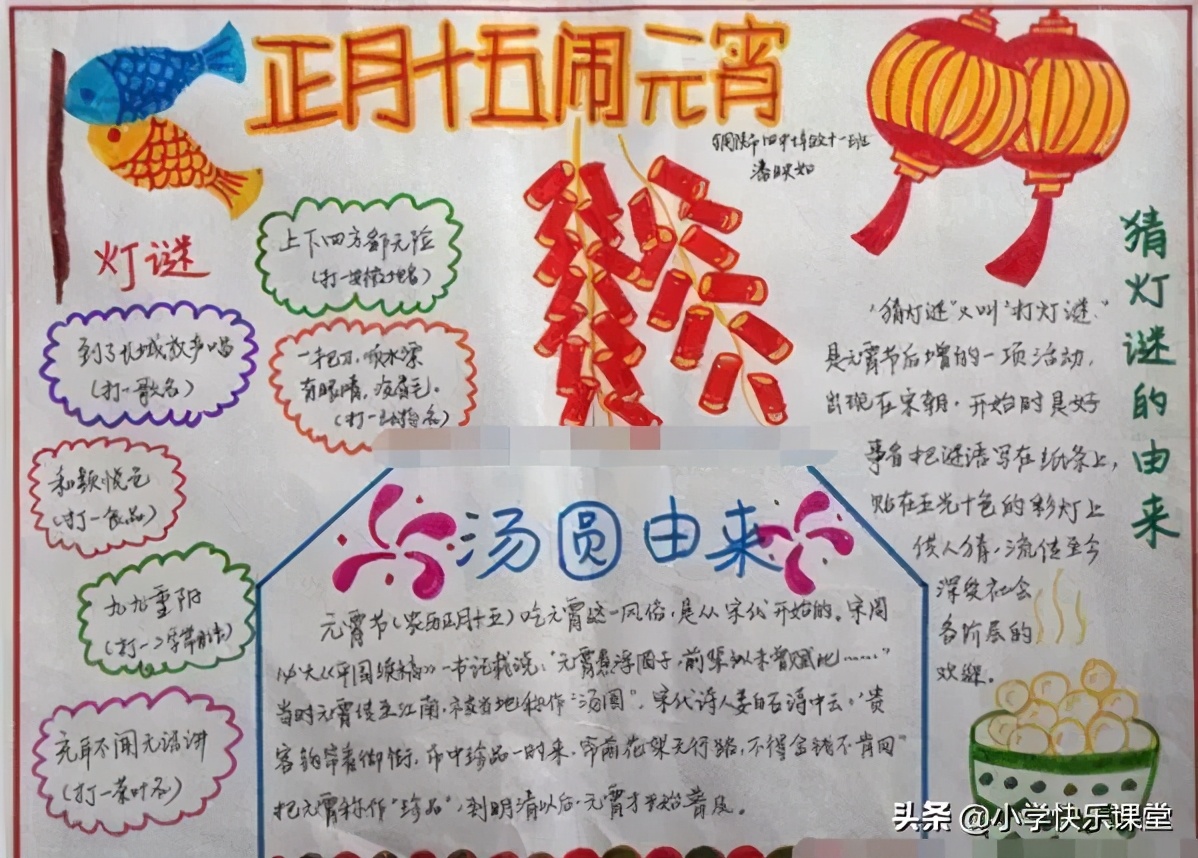 正月十五闹元宵
潘映如
灯谜
上下四方都无险
(打一安徽地名)
到了长城放声唱
(打一歌名)
一把刀,顺水漂
有眼睛,没眉毛。
(打一动物名)
和颜悦色
(打一食品)
九九重阳
(打一二字常用语)
充耳不闻无话讲
(打一茶叶名)
猜灯谜的由来
“猜灯谜”又叫“打灯谜”
是元宵节后增的一项活动,
出现在宋朝。开始时是好
事者把谜语写在纸条上,
贴在五光十色的彩灯上
供人猜。流传至今
深受社会
各阶层的
欢迎。
汤圆由来
元宵节(农历正月十五)吃元宵这一风俗,是从宋代开始的。宋周
必大《平园续稿》一书记载说:“元宵煮浮圆子,前辈似未曾赋此……”
当时元宵传至江南,被当地称作“汤圆”。宋代诗人姜白石诗中云:“贵
客钩帘看御街,市中珍品一时来,帘前花架无行路,不得金钱不肯回”
把元宵称作“珍品”,到明清以后,元宵才开始普及。
头条 @小学快乐课堂